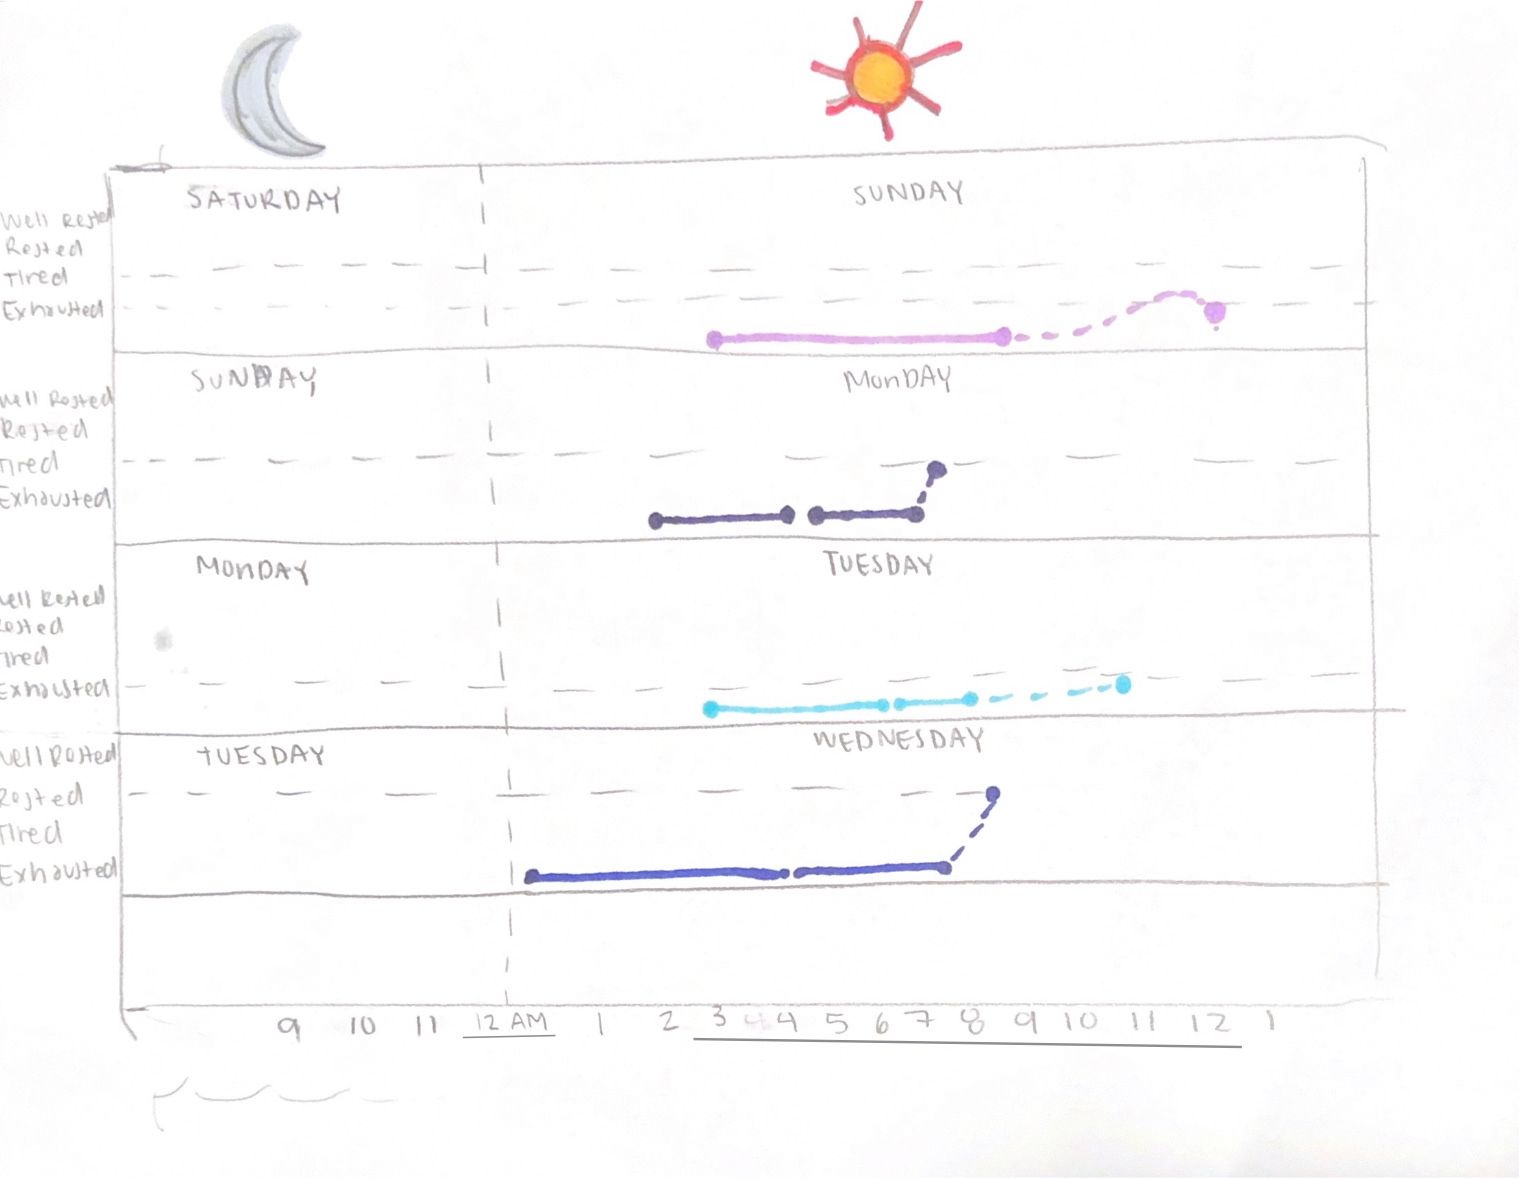 SATURDAY SUNDAY
Well Rested
Rested
Tired
Exhausted
SUNDAY MONDAY
Well Rested
Rested
Tired
Exhausted
MONDAY TUESDAY
Well Rested
Rested
Tired
Exhausted
TUESDAY WEDNESDAY
Well Rested
Rested
Tired
Exhausted
9 10 11 12 AM 1 2 3 4 5 6 7 8 9 10 11 12 1